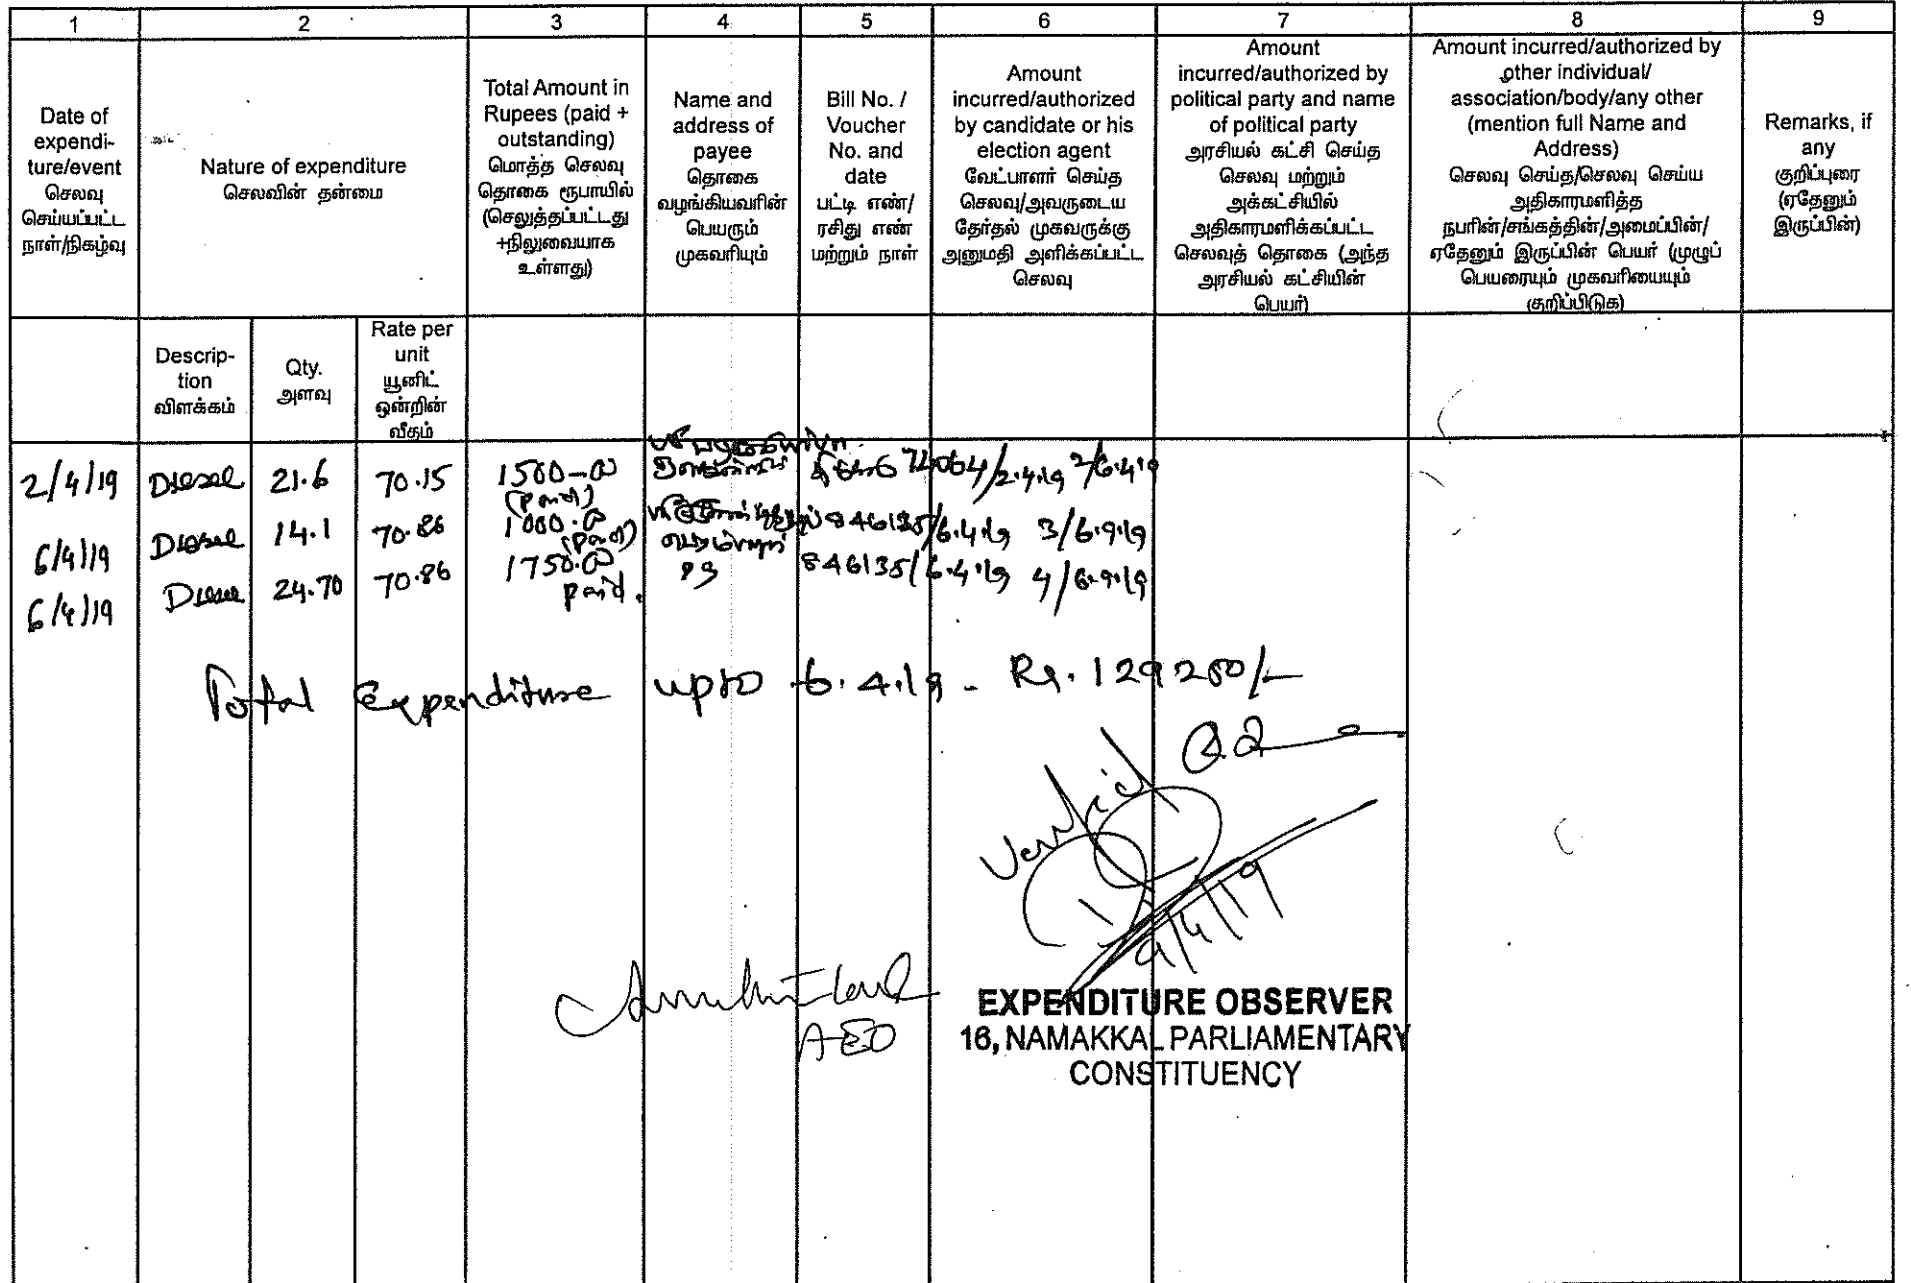 1 2 3 4 5 6 7 8 9
Date of
expendi-
ture/event
செலவு
செய்யப்பட்ட
நாள்/நிகழ்வு
Nature of expenditure
செலவின் தன்மை
Total Amount in
Rupees (paid +
outstanding)
மொத்த செலவு
தொகை ரூபாயில்
(செலுத்தப்பட்டது
+நிலுவையாக
உள்ளது)
Name and
address of
payee
தொகை
வழங்கியவரின்
பெயரும்
முகவரியும்
Bill No. /
Voucher
No. and
date
பட்டி எண்/
ரசிது எண்
மற்றும் நாள்
Amount
incurred/authorized
by candidate or his
election agent
வேட்பாளர் செய்த
செலவு/அவருடைய
தேர்தல் முகவருக்கு
அனுமதி அளிக்கப்பட்ட
செலவு
Amount
incurred/authorized by
political party and name
of political party
அரசியல் கட்சி செய்த
செலவு மற்றும்
அக்கட்சியில்
அதிகாரமளிக்கப்பட்ட
செலவுத் தொகை (அந்த
அரசியல் கட்சியின்
பெயர்)
Amount incurred/authorized by
other individual/
association/body/any other
(mention full Name and
Address)
செலவு செய்த/செலவு செய்ய
அதிகாரமளித்த
நபரின்/சங்கத்தின்/அமைப்பின்/
ஏதேனும் இருப்பின் பெயர் (முழுப்
பெயரையும் முகவரியையும்
குறிப்பிடுக)
Remarks, if
any
குறிப்புரை
(ஏதேனும்
இருப்பின்)
Descrip-
tion
விளக்கம்
Qty.
அளவு
Rate per
unit
யூனிட்
ஒன்றின்
வீதம்
2/4/19 Diesel 21.6 70.15 1500-00 74064/2.4.19 2/6.4.19
(paid)
6/4/19 Diesel 14.1 70.86 1000.00 846135/6.4.19 3/6.4.19
(paid)
6/4/19 Diesel 24.70 70.86 1750.00 846135/6.4.19 4/6.4.19
paid.
Total Expenditure upto 6.4.19 - Rs. 129250/-
Verified
9/4/19
AEO
EXPENDITURE OBSERVER
16, NAMAKKAL PARLIAMENTARY
CONSTITUENCY